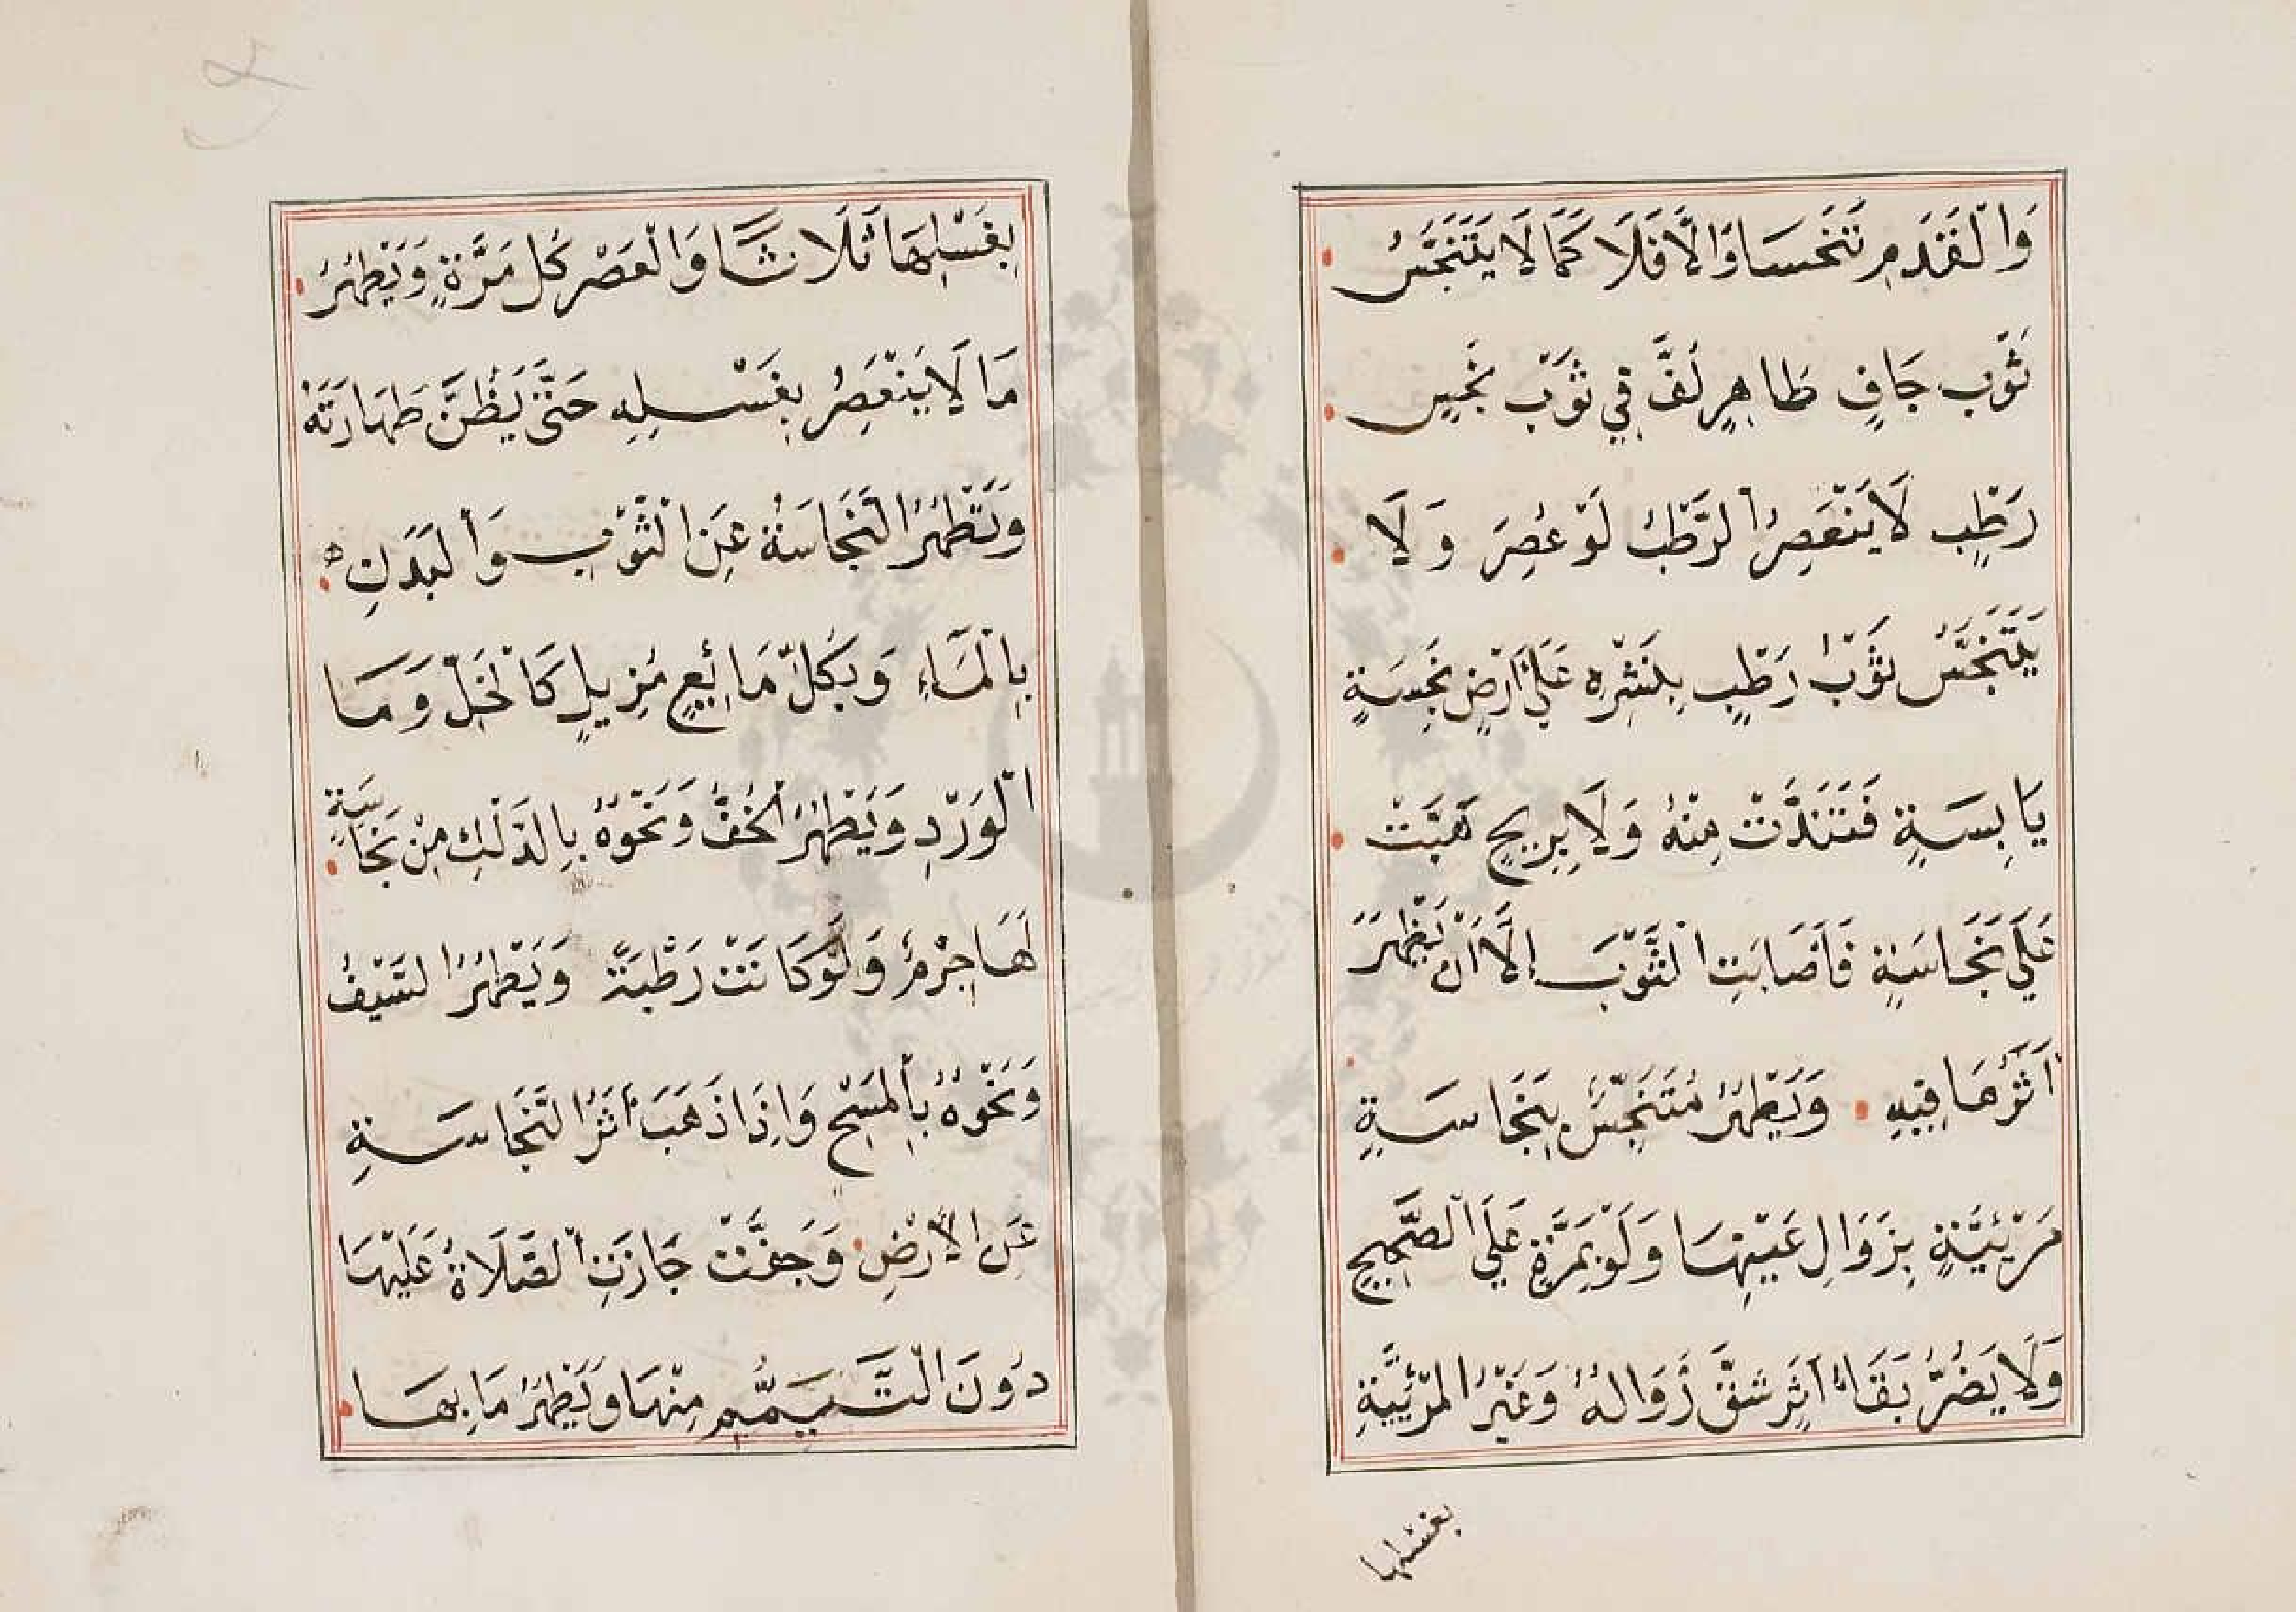 وَالْقَدَمِ تَنَجَّسَا وَاِلَّا فَلَا كَمَا لَا يَتَنَجَّسُ
ثَوْب جَافٍ طَاهِرٍ لُفَّ فِي ثَوْبٍ نَجِسٍ
رَطْبٍ لَا يَنْعَصِرُ الرَّطْبُ لَوْ عُصِرَ وَلَا
يَتَنَجَّسُ ثَوْبٌ رَطْبٍ بِنَشْرِهِ عَلَى اَرْضٍ نَجِسَةٍ
يَابِسَةٍ فَتَنَدَّتْ مِنْهُ وَلَا بِرِيحٍ هَبَّتْ
عَلَى نَجَاسَةٍ فَاَصَابَتِ الثَّوْبَ اِلَّا اَنْ يَظْهَرَ
اَثَرُهَا فِيْهِ وَيَطْهُرُ مُتَنَجِّسٌ بِنَجَاسَةٍ
مَرْئِيَّةٍ بِزَوَالِ عَيْنِهَا وَلَوْ بِمَرَّةٍ عَلَى الصَّحِيحِ
وَلَا يَضُرُّ بَقَاءُ اَثَرٍ شَقَّ زَوَالُهُ وَغَيْرُ الْمَرْئِيَّةِ
بغسلها
بِغَسْلِهَا ثَلَاثًا وَالْعَصْرِ كُلَّ مَرَّةٍ وَيَطْهُرُ
مَا لَا يَنْعَصِرُ بِغَسْلِهِ حَتَّى يَظُنَّ طَهَارَتَهُ
وَتَطْهُرُ النَّجَاسَةُ عَنِ الثَّوْبِ وَالْبَدَنِ
بِالْمَاءِ وَبِكُلِّ مَائِعٍ مُزِيلٍ كَالْخَلِّ وَمَا
الْوَرْدِ وَيَطْهُرُ الْخُفُّ وَنَحْوُهُ بِالدَّلْكِ مِنْ نَجَاسَةٍ
لَهَا جِرْمٌ وَلَوْ كَانَتْ رَطْبَةً وَيَطْهُرُ السَّيْفُ
وَنَحْوُهُ بِالْمَسْحِ وَاِذَا ذَهَبَ اَثَرُ النَّجَاسَةِ
عَنِ الْاَرْضِ وَجَفَّتْ جَازَتِ الصَّلَاةُ عَلَيْهَا
دُونَ التَّيَمُّمِ مِنْهَا وَيَطْهُرُ مَا بِهَا